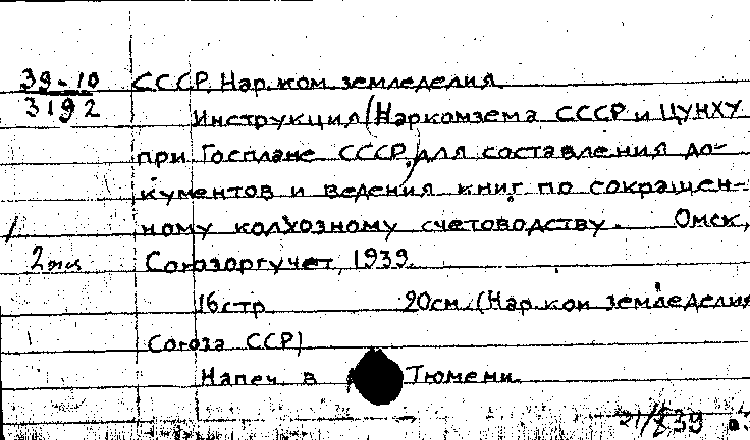 39-10
3192
СССР. Нар.ком.земледелия.
Инструкция (Наркомзема СССР и ЦУНХУ
при Госплане СССР) для составления до-
кументов и ведения книг по сокращен-
ному колхозному счетоводству. Омск,
2 экз
Союзоргучет, 1939.
16 стр. 20см. (Нар.ком земледелия
Союза ССР)
Напеч. в Тюмени.